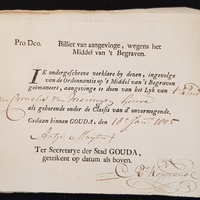 Pro Deo. Billiet van aangevinge, wegens het
Middel van 't Begraven.
IK ondergeschreve verklare by dezen, ingevolge
van de Ordonnantie op 't Middel van 't Begraven
geëmaneert, aangevinge te doen van het Lyk van
Cornelis
als gehorende onder de Classis van d' onvermogende.
Gedaan binnen GOUDA, den 18 Jan 1805
Ter Secretarye der Stad GOUDA,
geteikent op datum als boven.